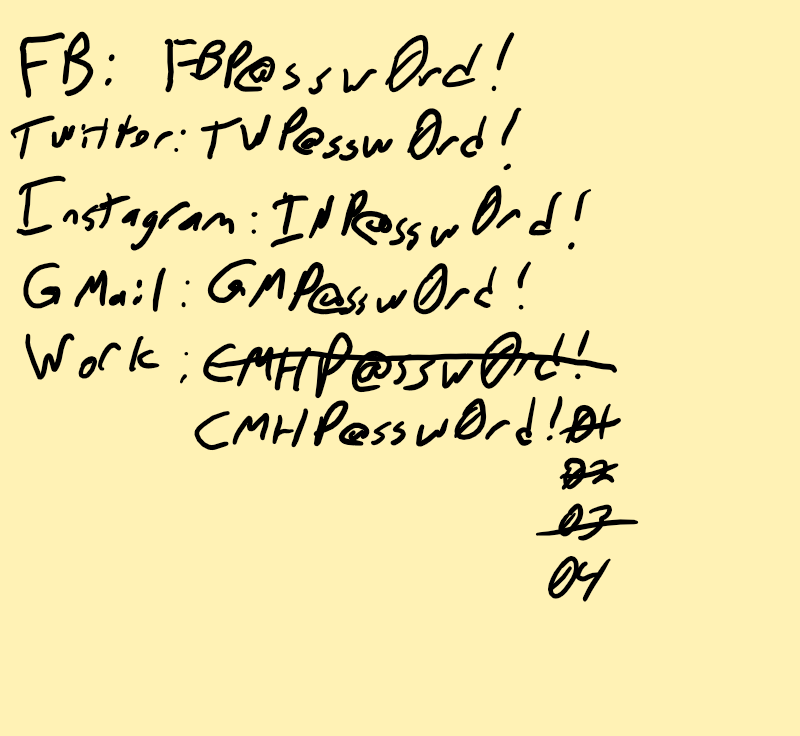 FB: FBP@ssw0rd!
Twitter: TWP@ssw0rd!
Instagram: INP@ssw0rd!
GMail: GMP@ssw0rd!
Work: CMHP@ssw0rd!
CMHP@ssw0rd!01
02
03
04